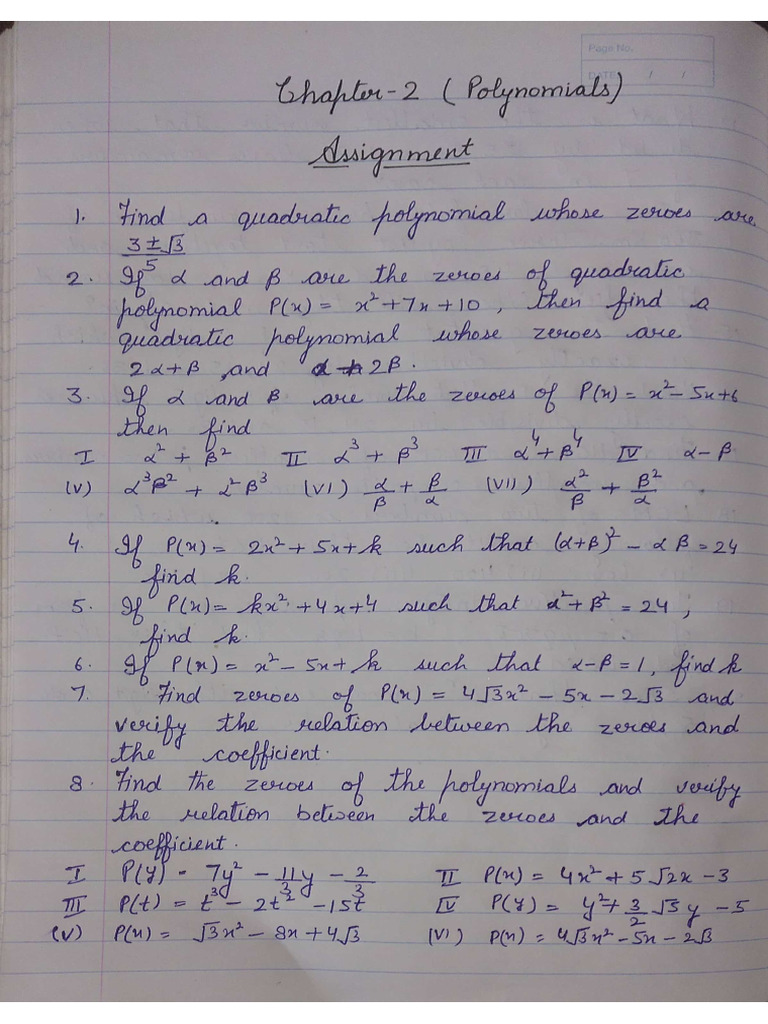 Page No.
DATE / /
Chapter-2 (Polynomials)
Assignment
1. Find a quadratic polynomial whose zeroes are
3±√3
5
2. If α and β are the zeroes of quadratic
polynomial P(x) = x²+7x+10, then find a
quadratic polynomial whose zeroes are
2α+β and α + 2β.
3. If α and β are the zeroes of P(x) = x²-5x+6
then find
I α² + β² II α³ + β³ III α⁴+β⁴ IV α-β
(V) α³β² + α²β³ (VI) α/β + β/α (VII) α²/β + β²/α
4. If P(x) = 2x²+5x+k such that (α+β)² - αβ = 24
find k.
5. If P(x) = kx²+4x+4 such that α²+β² = 24;
find k.
6. If P(x) = x²-5x+k such that α-β=1, find k
7. Find zeroes of P(x) = 4√3x² - 5x - 2√3 and
verify the relation between the zeroes and
the coefficient.
8. Find the zeroes of the polynomials and verify
the relation between the zeroes and the
coefficient.
I P(y) = 7y² - 11/3y - 2/3 II P(x) = 4x²+5√2x-3
III P(t) = t³ - 2t² - 15t IV P(y) = y²+3/2√5y-5
(V) P(x) = √3x² - 8x+4√3 (VI) P(x) = 4√3x²-5x-2√3